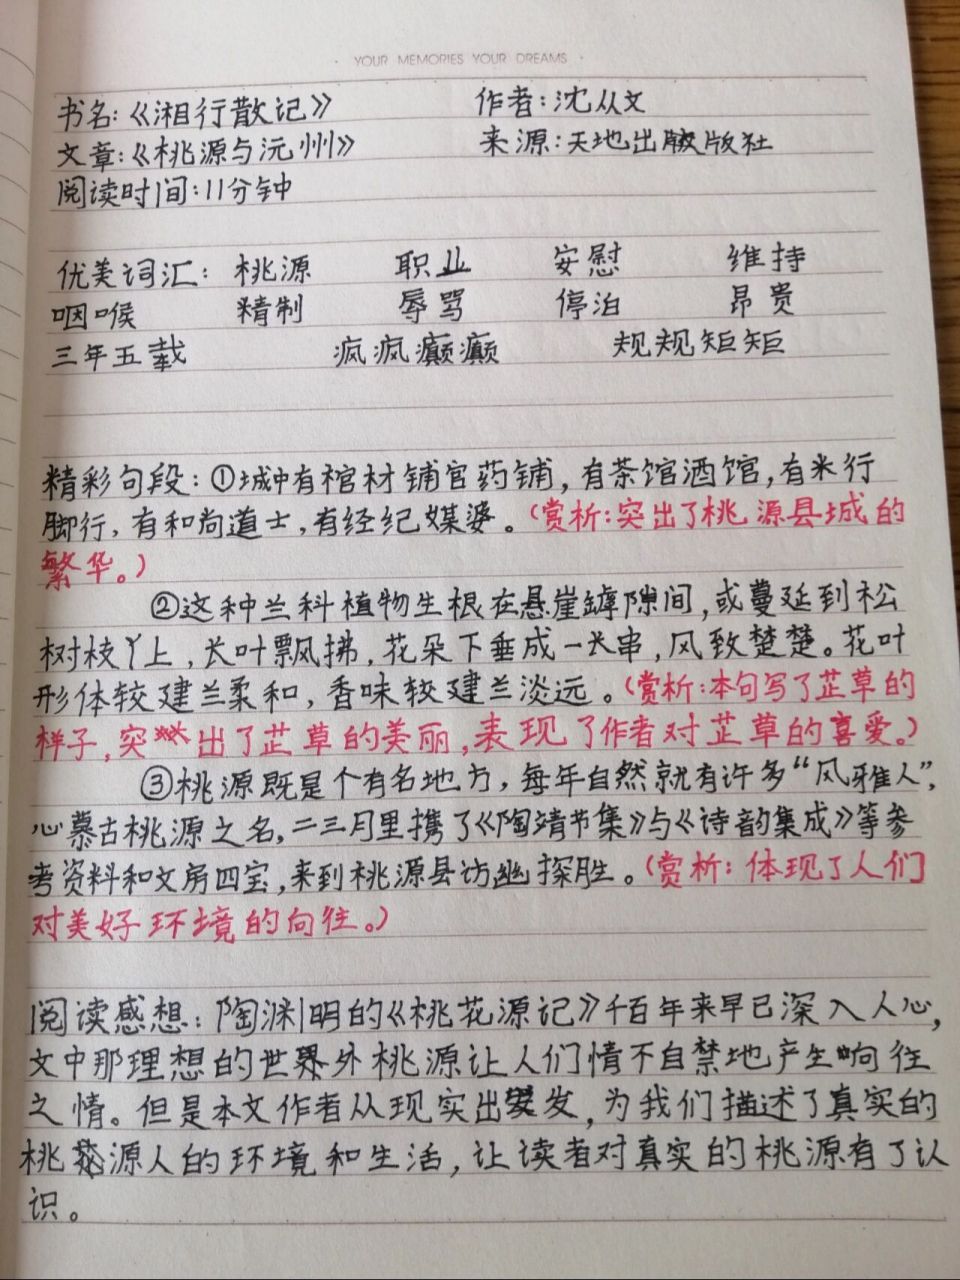 YOUR MEMORIES YOUR DREAMS
书名:《湘行散记》 作者:沈从文
文章:《桃源与沅州》 来源:天地出版社
阅读时间:11分钟
优美词汇: 桃源 职业 安慰 维持
咽喉 精制 辱骂 停泊 昂贵
三年五载 疯疯癫癫 规规矩矩
精彩句段:①城中有棺材铺官药铺,有茶馆酒馆,有米行
脚行,有和尚道士,有经纪媒婆。(赏析:突出了桃源县城的
繁华。)
②这种兰科植物生根在悬崖罅隙间,或蔓延到松
树枝丫上,长叶飘拂,花朵下垂成一长串,风致楚楚。花叶
形体较建兰柔和,香味较建兰淡远。(赏析:本句写了芷草的
样子,突出了芷草的美丽,表现了作者对芷草的喜爱。)
③桃源既是个有名地方,每年自然就有许多“风雅人”,
心慕古桃源之名,二三月里携了《陶靖节集》与《诗韵集成》等参
考资料和文房四宝,来到桃源县访幽探胜。(赏析:体现了人们
对美好环境的向往。)
阅读感想:陶渊明的《桃花源记》千百年来早已深入人心,
文中那理想的世界外桃源让人们情不自禁地产生向往
之情。但是本文作者从现实出发,为我们描述了真实的
桃源人的环境和生活,让读者对真实的桃源有了认
识。